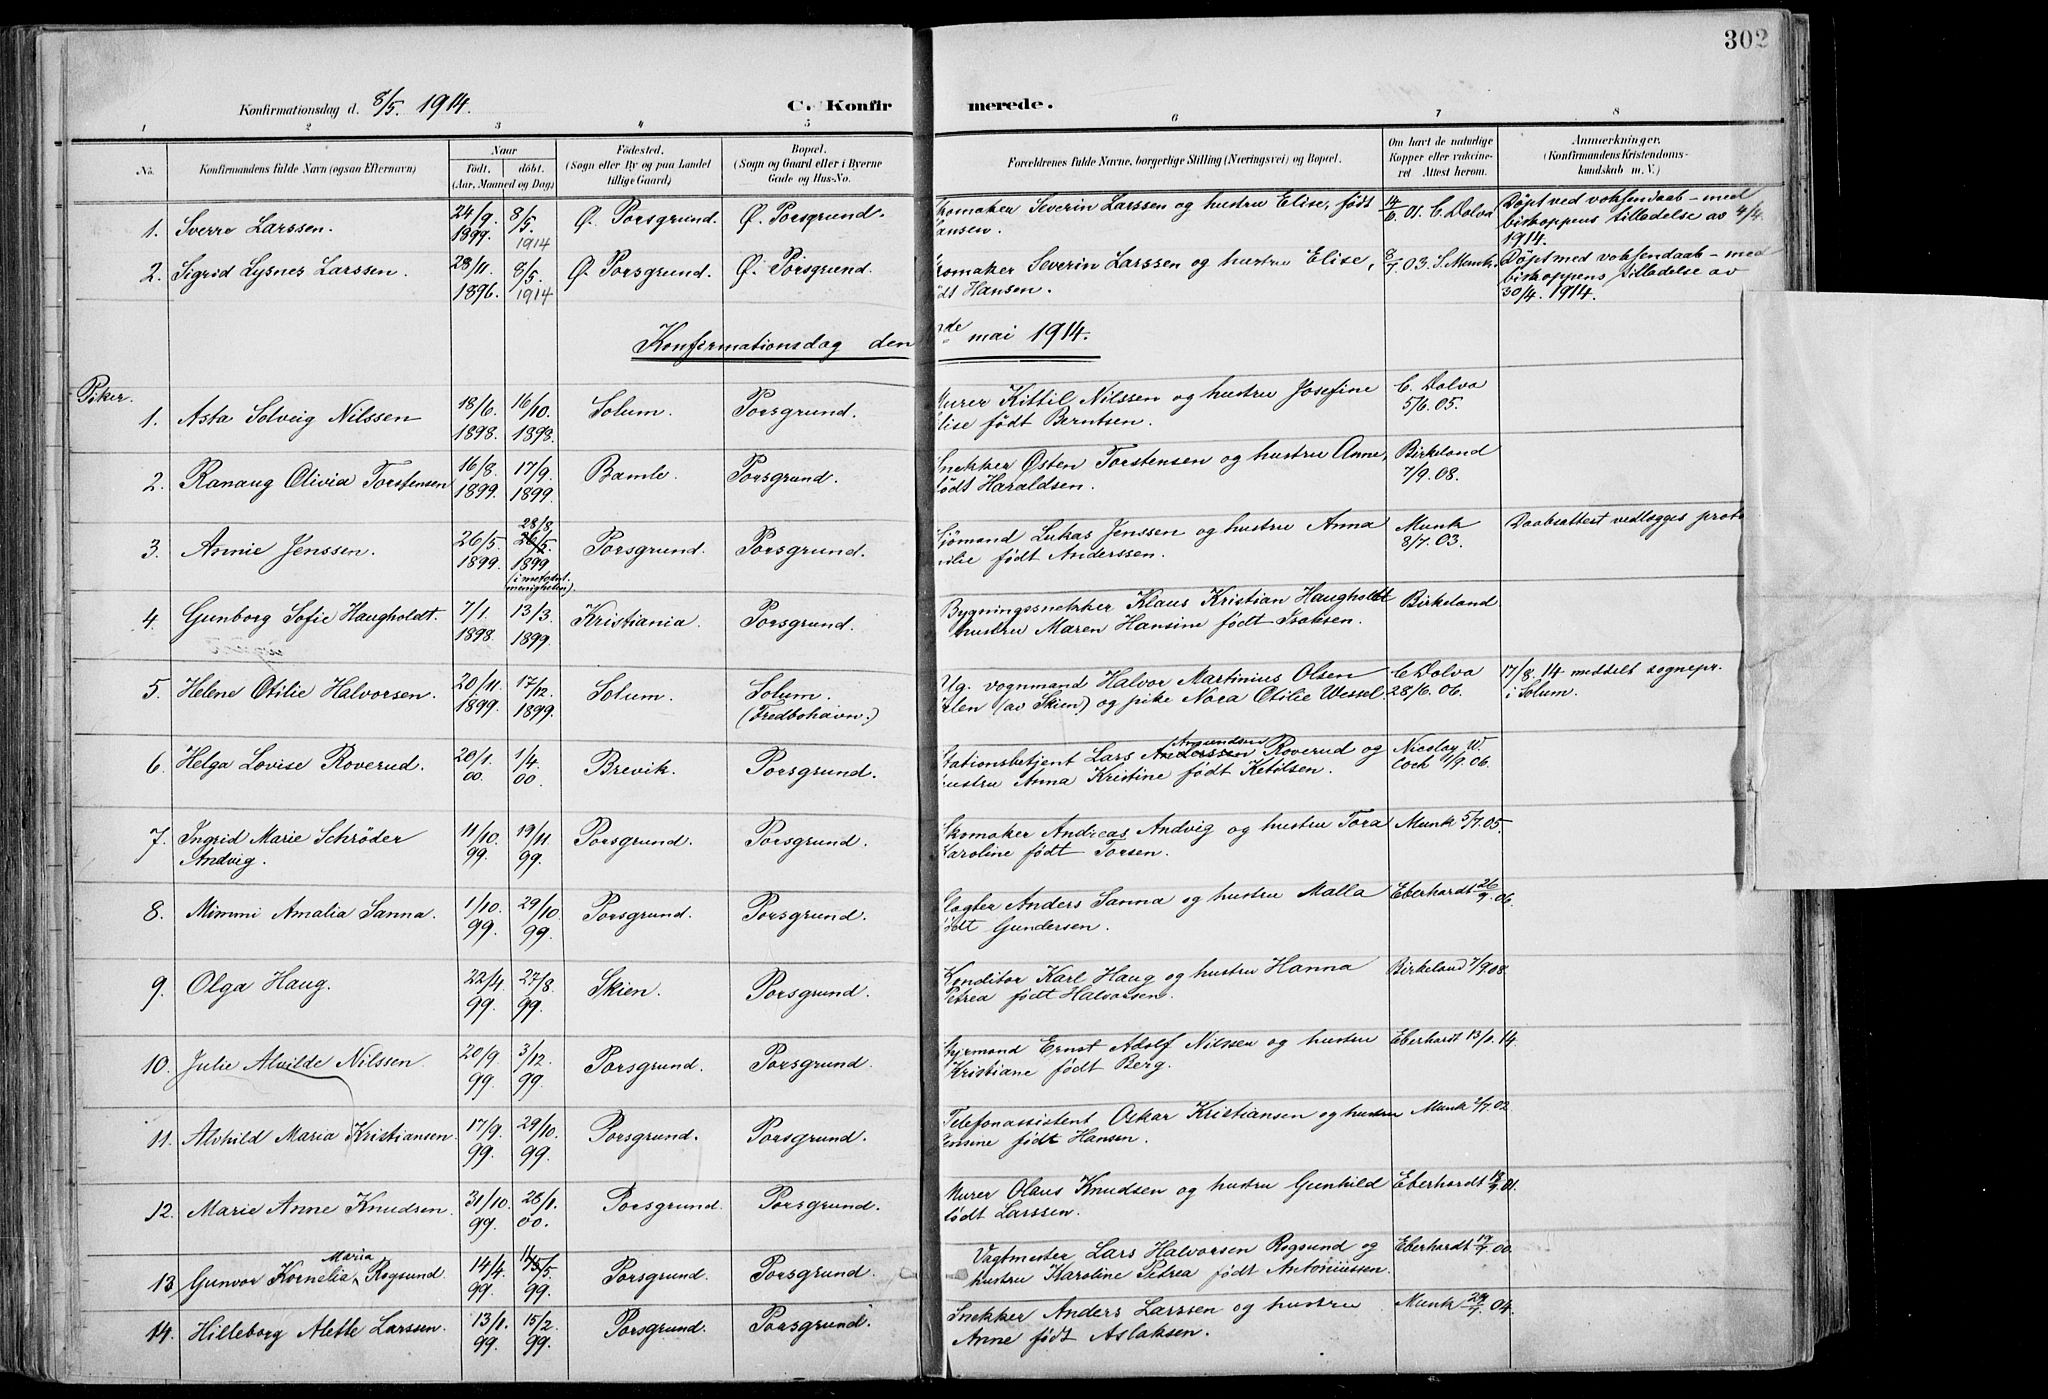 302
Konfirmationsdag d. 8/5. 1914.
C. Konfir merede.
1 2 3 4 5 6 7 8
No. Konfirmandens fulde Navn (ogsaa Efternavn) Naar født. døbt. (Aar, Maaned og Dag) Fødested. (Sogn eller By og paa Landet tillige Gaard) Bopæl. (Sogn og Gaard eller i Byerne Gade og Hus-No. Forældrenes fulde Navne, borgerlige Stilling (Næringsvei) og Bopæl. Om havt de naturlige Kopper eller vakcineret Attest herom. Anmerkninger. (Konfirmandens Kristendomskundskab m. V.)
1. Sverre Larssen. 24/9. 1899. 8/5. 1914 Ø. Porsgrund. Ø. Porsgrund. komaker Severin Larssen og hustru Elise, født 14/6 01. C. Dolva Døpt ved voksendaab - med
ansen. biskoppens tilladelse av 4/4.
1914.
2. Sigrid Lysnes Larssen. 28/11 1896. 8/5. 1914 Ø. Porsgrund. Ø. Porsgrund. komaker Severin Larssen og hustru Elise, 8/7. 03. S. Munk. Døpt med voksendaab - med
dt Hansen. biskoppens tilladelse av
30/4. 1914.
Konfirmationsdag den de mai 1914.
Piker.
1. Asta Solveig Nilssen 18/6. 1898. 16/10. 1898. Solum. Porsgrund. Murer Kittil Nilssen og hustru Josefine C. Dolva
lise født Berntsen. 5/6. 05.
2. Ranaug Olivia Torstensen 16/8. 1899. 17/9. 1899. Bamle. Porsgrund. Snekker Østen Torstensen og hustru Anne, Birkeland
født Haraldsen. 7/9. 08.
3. Annie Jenssen. 26/5. 1899. 28/8. 26/5. 1899 (i metodist. menigheten). Porsgrund. Porsgrund. Sjømand Lukas Jenssen og hustru Anna Munk Daabsattest vedlægges proto
ilie født Anderssen. 8/7. 03.
4. Gunborg Sofie Haugholdt. 7/1. 1898. 13/3. 1899. Kristiania. Porsgrund. Bygningssnekker Klaus Kristian Haugholdt Birkeland
hustru Maren Hansine født Isaksen.
5. Helene Otilie Halvorsen. 20/11. 1899. 17/12. 1899. Solum. Solum. (Fredbohavn.) Ug. vognmand Halvor Martinius Olsen C. Dolva 17/8. 14 meddelt sognepr.
(av Skien) og pike Nora Otilie Wessel. 28/6. 06. i Solum.
6. Helga Lovise Roverud. 20/1. 00. 1/4. 00. Brevik. Porsgrund. Stationsbetjent Lars Anderssen Amundsen Roverud og Nicolay W.
hustru Anna Kristine født Ketilsen. Coch 1/9. 06.
7. Ingrid Marie Schrøder Andvig. 11/10. 99. 19/11. 99. Porsgrund. Porsgrund. Skomaker Andreas Andvig og hustru Tora Munk 5/7. 05.
Karoline født Torsen.
8. Mimmi Amalia Sanna. 1/10. 99. 29/10. 99. Porsgrund. Porsgrund. Anders Sanna og hustru Malla Eberhardt 26/9. 06.
født Gundersen.
9. Olga Haug. 22/4. 99. 27/8. 99. Skien. Porsgrund. Konditor Karl Haug og hustru Hanna Birkeland 7/9. 08.
Petrea født Halvorsen.
10. Julie Alvilde Nilssen 20/9 99. 3/12. 99. Porsgrund. Porsgrund. Styrmand Ernst Adolf Nilssen og hustru Eberhardt 13/1. 14.
Kristiane født Berg.
11. Alvhild Maria Kristiansen. 17/9. 99. 29/10. 99. Porsgrund. Porsgrund. Telefonassistent Oskar Kristiansen og hustru Munk 2/7. 02.
Jensine født Hansen.
12. Marie Anne Knudsen. 31/10. 99. 28/1. 00. Porsgrund. Porsgrund. Murer Olaus Knudsen og hustru Gunhild Eberhardt 01.
født Larssen.
13. Gunvor Kornelia Maria Rogsund. 14/4. 99. 99. Porsgrund. Porsgrund. Vagtmester Lars Halvorsen Rogsund og Eberhardt 00.
hustru Karoline Petrea født Antoniussen.
14. Hilleborg Alette Larssen. 13/1. 99. 15/2. 99. Porsgrund. Porsgrund. Snekker Anders Larssen og hustru Munk 29/7. 04.
Anne født Aslaksen.